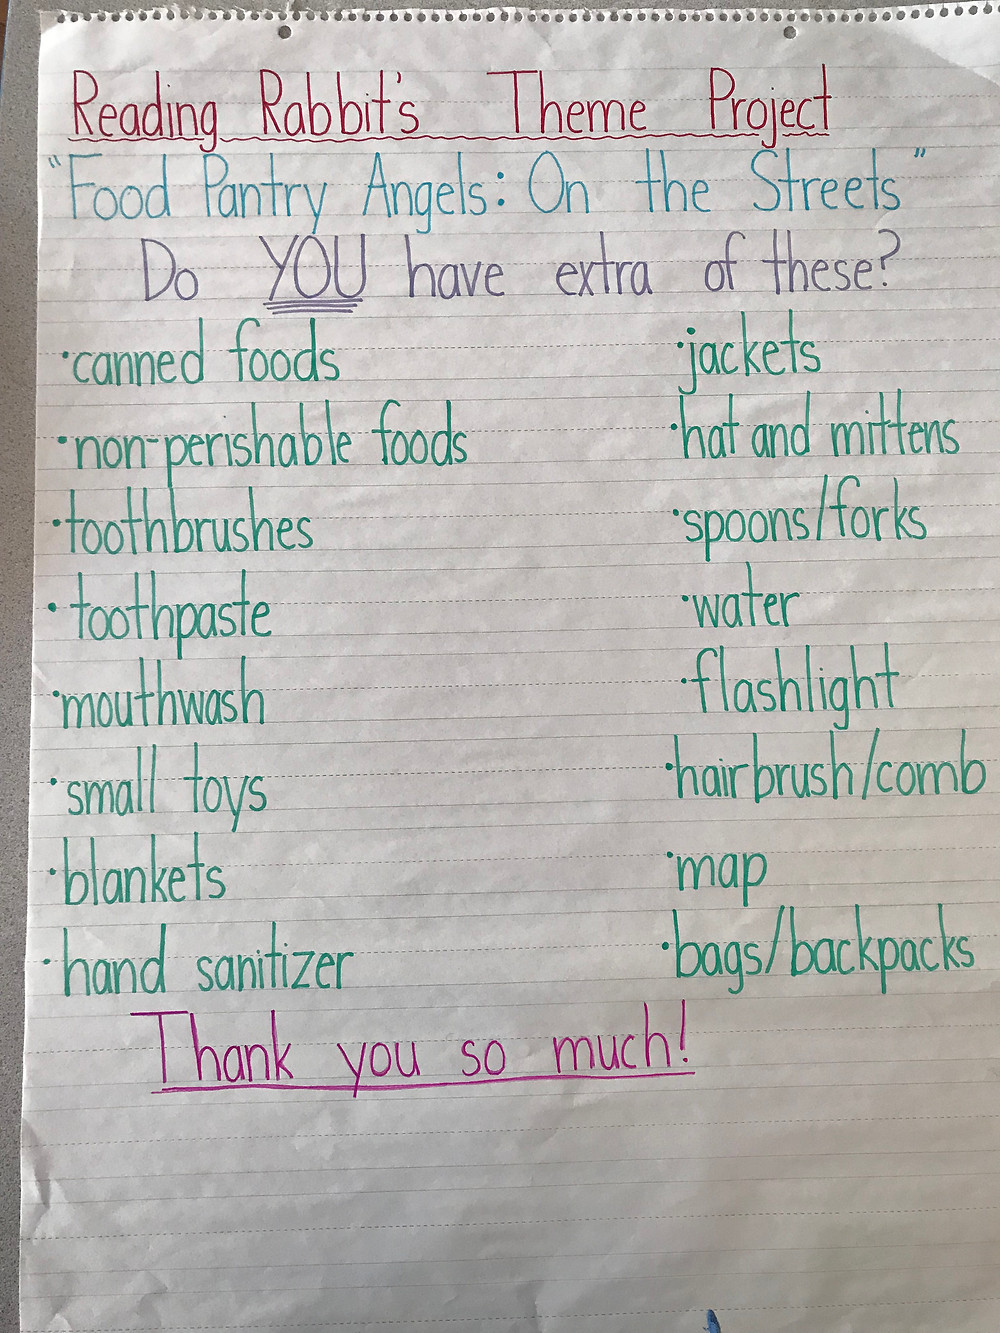 Reading Rabbit's Theme Project
"Food Pantry Angels: On the Streets"
Do YOU have extra of these?
·canned foods
·non-perishable foods
·toothbrushes
·toothpaste
·mouthwash
·small toys
·blankets
·hand sanitizer
·jackets
·hat and mittens
·spoons/forks
·water
·flashlight
·hairbrush/comb
·map
·bags/backpacks
Thank you so much!